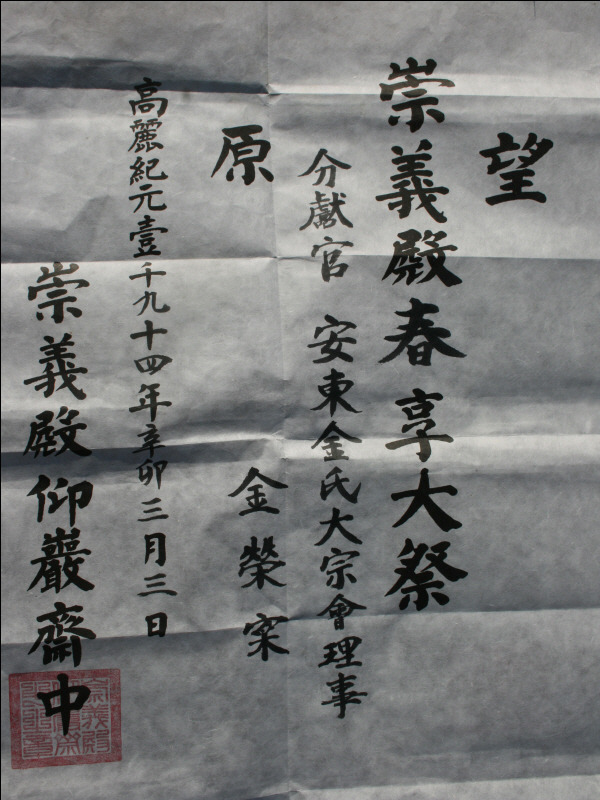 望
崇義殿春享大祭
分獻官 安東金氏大宗會理事
原 金榮寀
高麗紀元壹千九十四年辛卯三月三日
崇義殿仰巖齋中